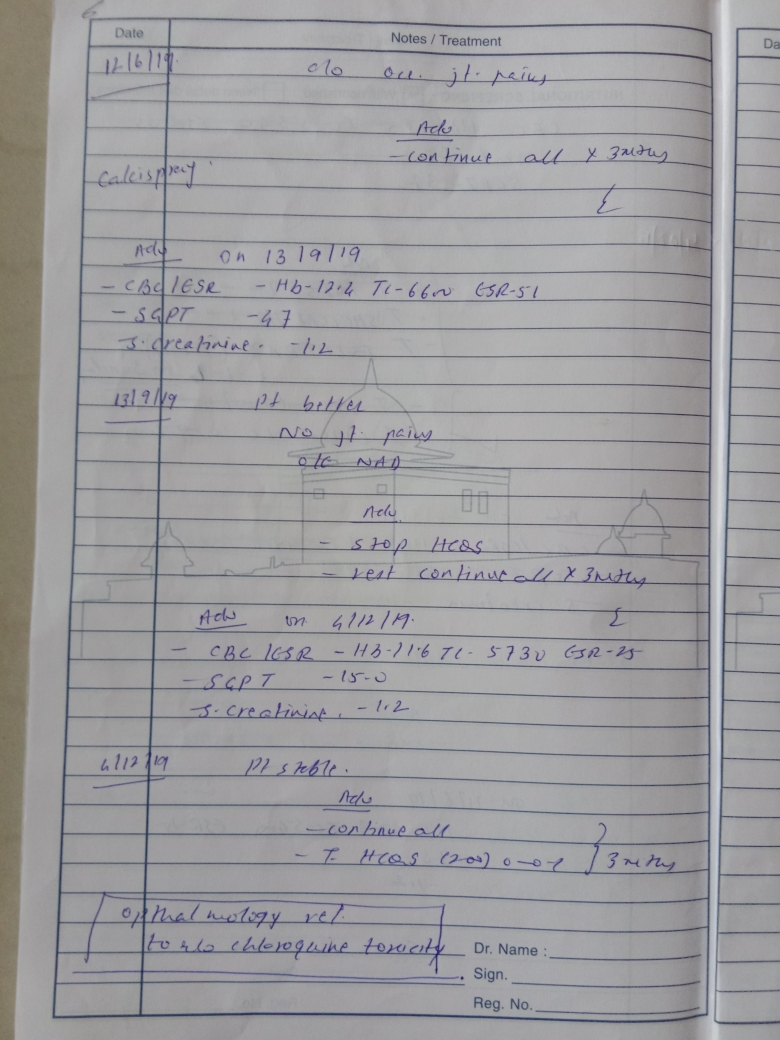 Date Notes / Treatment Da
12/6/19 c/o occ. jt. pains
Adv
- continue all x 3mths
Calcispray
Adv on 13/9/19
- CBC/ESR - Hb-12.4 TC-6600 ESR-51
- SGPT -47
S. creatinine. -1.2
13/9/19 Pt better
No jt. pains
o/e NAD
Adv.
- stop HCQS
- rest continue all x 3mths
Adv on 4/12/19.
- CBC/ESR - Hb-11.6 TC- 5730 ESR-25
- SGPT -15.0
S. creatinine. -1.2
4/12/19 Pt stable.
Adv
- continue all
- T. HCQS (200) 0-0-1 } 3mths
opthalmology ref.
to r/o chloroquine toxicity
Dr. Name :
Sign.
Reg. No.